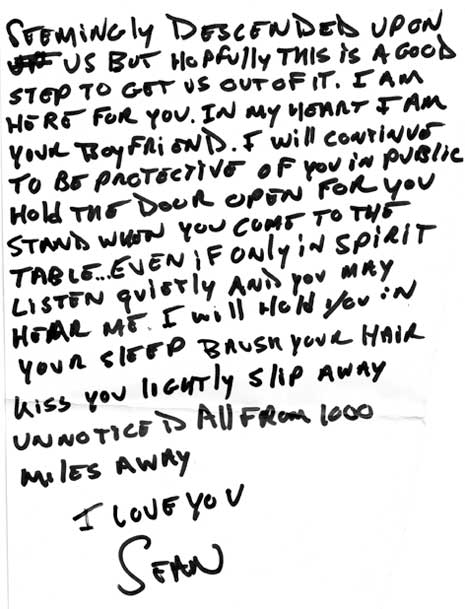 SEEMINGLY DESCENDED UPON
US BUT HOPFULLY THIS IS A GOOD
STEP TO GET US OUT OF IT. I AM
HERE FOR YOU. IN MY HEART I AM
YOUR BOYFRIEND. I WILL CONTINUE
TO BE PROTECTIVE OF YOU IN PUBLIC
HOLD THE DOOR OPEN FOR YOU
STAND WHEN YOU COME TO THE
TABLE... EVEN IF ONLY IN SPIRIT
LISTEN QUIETLY AND YOU MAY
HEAR ME. I WILL HOLD YOU IN
YOUR SLEEP BRUSH YOUR HAIR
KISS YOU LIGHTLY SLIP AWAY
UNNOTICED ALL FROM 1000
MILES AWAY
I LOVE YOU
SEAN